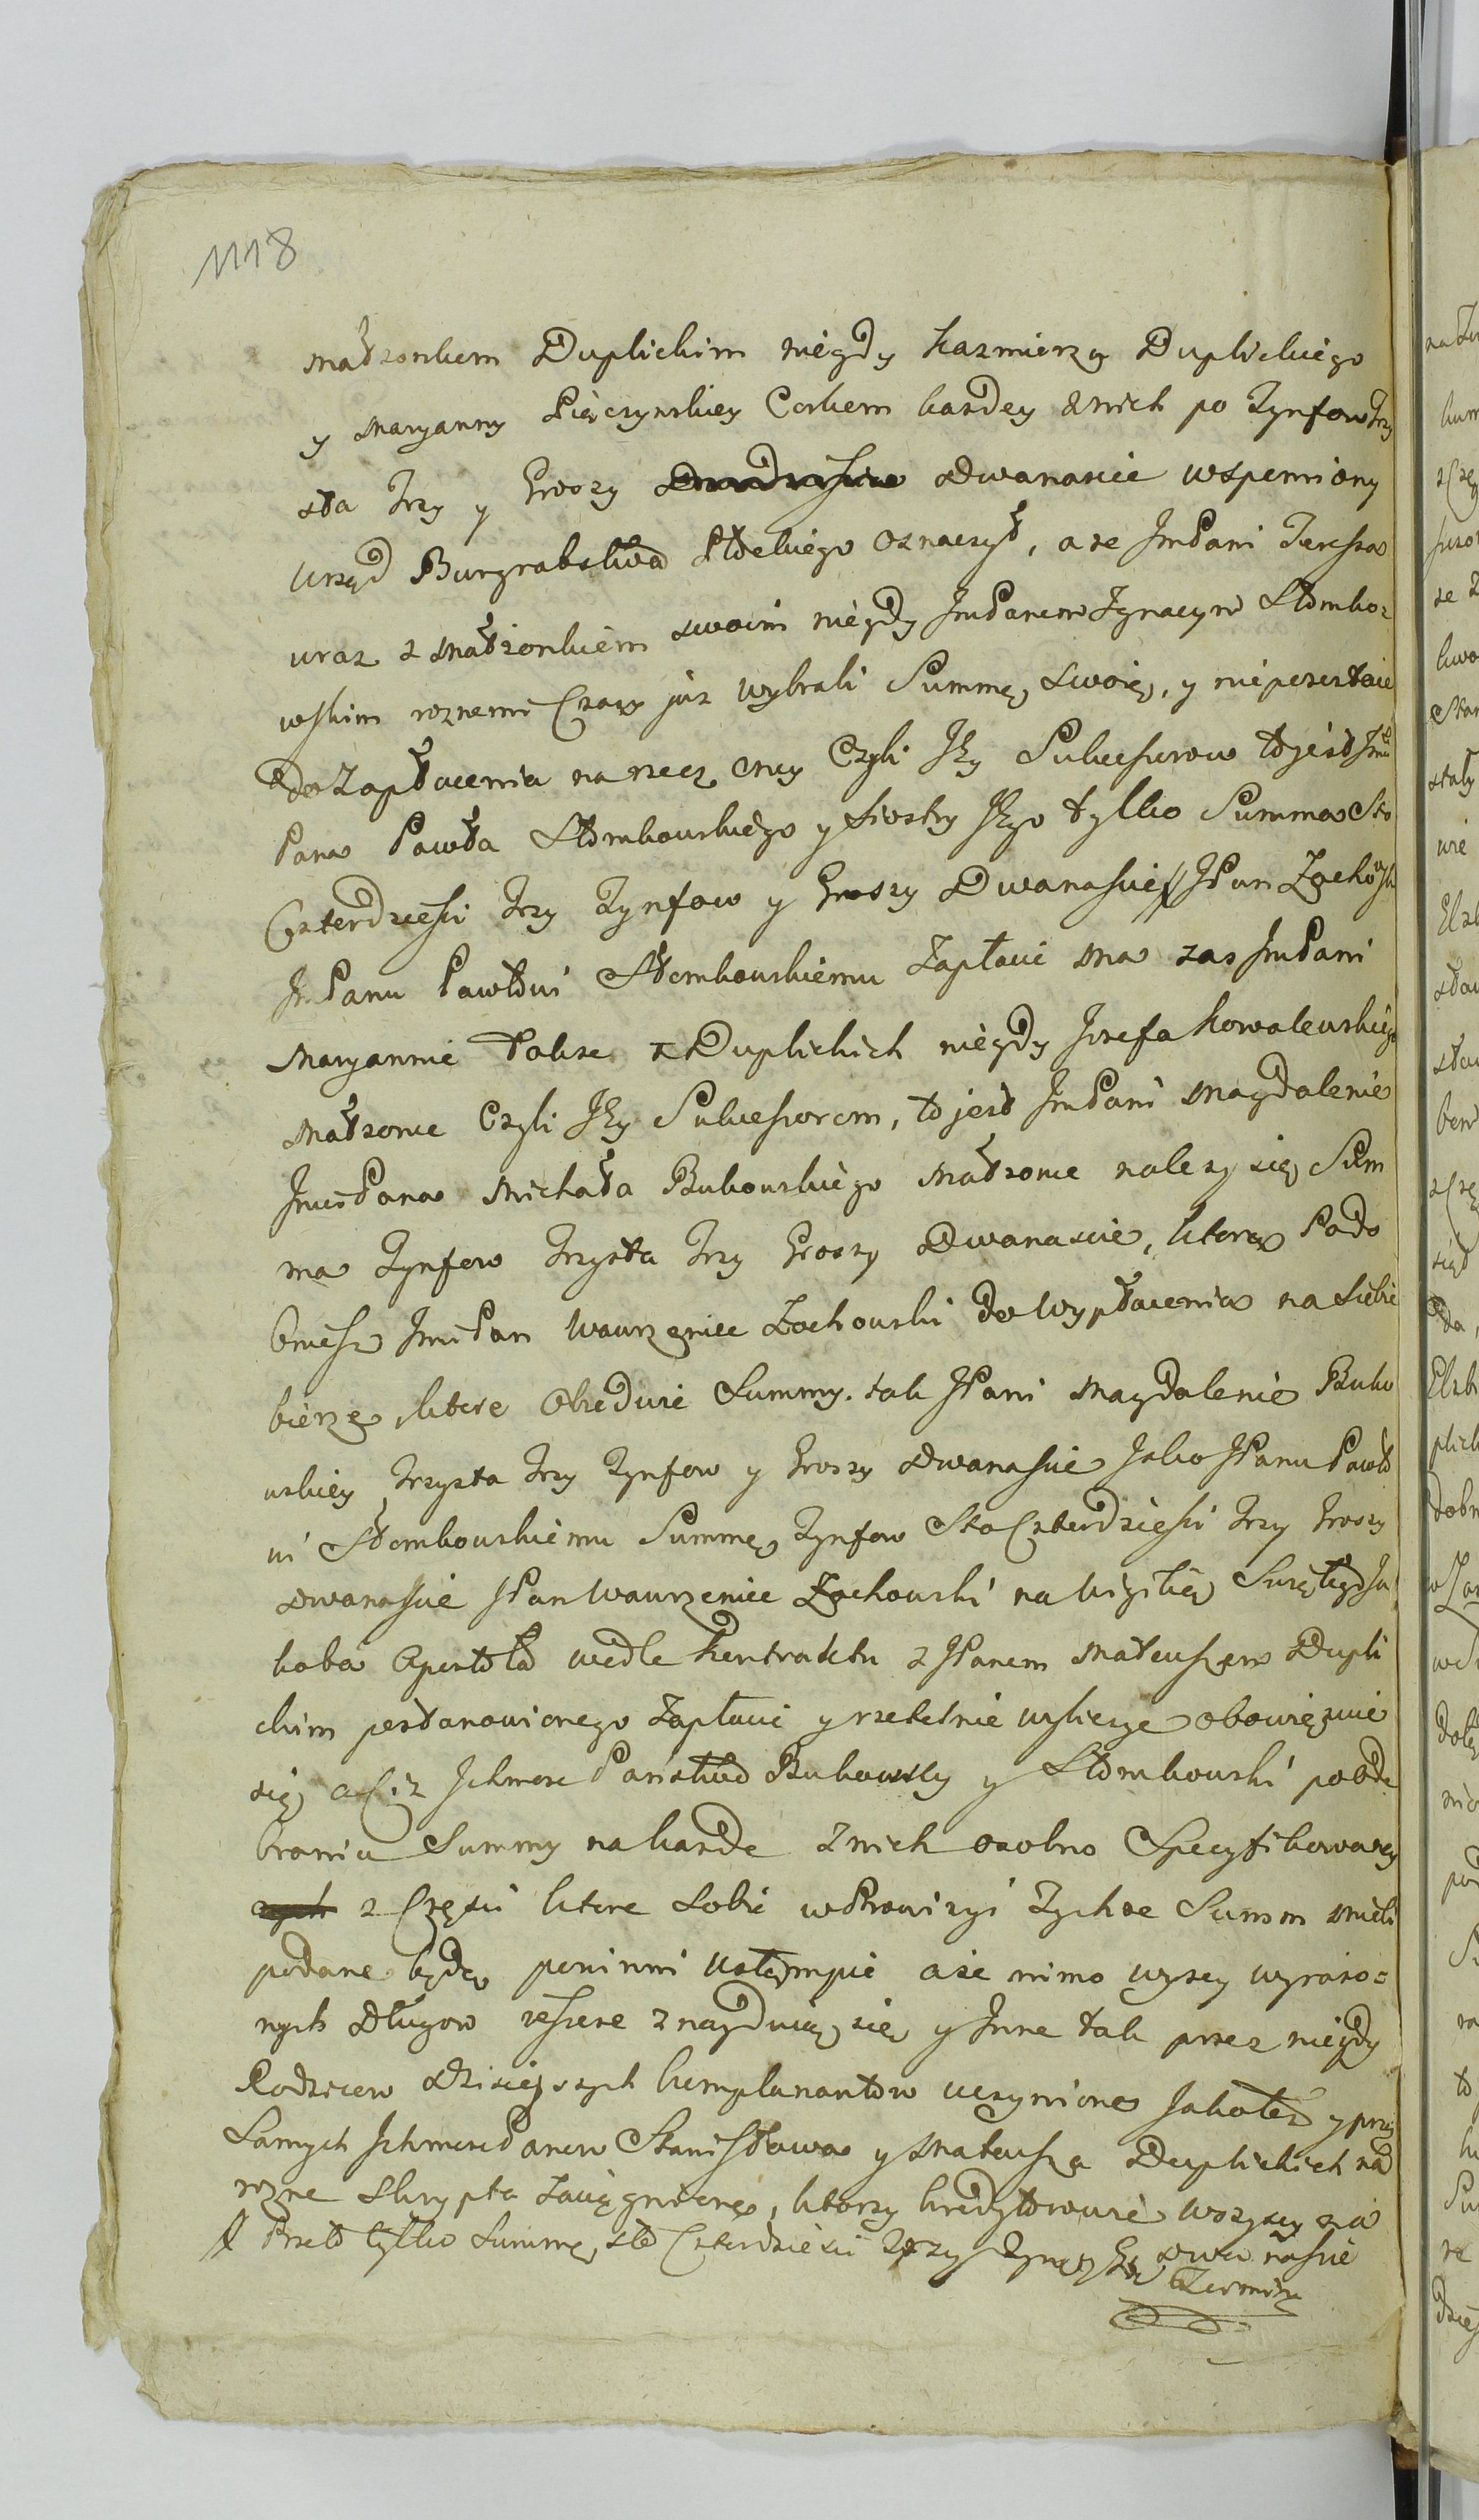 1118
Małzonkem Duplichim niegdy Kazmierza Duplickiego
y Maryanny Pieczynskiey Corkem kazdey z nich po Tynfow Trzy
sta Trzy y Groszy Dwanascie wspemniony
Urząd Burgrabstwa oznaczył, a ze JmPani Teressa
wraz z Małzonkiem swoim niegdy JmPanem Jgnacym Słombo=
wskim roznemi Czasy juz wybrali Summę swoię, y niepozostaie
do Zapłacenia na rzecz oney Czyli Jey Sukcessorow to jest Jmci
Pana Pawła Słombowskiego y siostry Jego tylko Summa Sto
Czterdziesci Trzy Tynfow y Groszy Dwanascie JPan Zochowski
JmPanu Pawłowi Słombowskiemu Zapłacic ma zas JmPani
Maryannie takze z Duplichich niegdy Jozefa Kowalewskiego
Małzonce Czyli Jey Sukcessorom, to jest JmPani Magdalenie
JmciPana Michała Bukowskiego Małzonce nalezy się Sum
ma Tynfow Trzysta Trzy Groszy Dwanascie, ktorą Podo
bniesz JmciPan Wawrzeniec Zochowski do Wypłacenia na siebie
bierze, ktore Obiedwie Summy. tak JPani Magdalenie Buko
wskiey Trzysta Trzy Tynfow y Groszy Dwanascie Jako JPanu Pawło
wi Słombowskiemu Summę Tynfow Sto Czterdziesci Trzy Groszy
Dwanascie JPan Wawrzeniec Zochowski na Wigilię Swiętego Ja
koba Apostoła wedle Kontraktu z JPanem Mateuszem Dupli
chim postanowionego Zapłacic y rzetelnie wyliczyc obowięzuie
się a Jchmosc Panstwo Bukowscy y Słombowski po ode
braniu Summy na kazde z nich osobno Specyfikowaney
z Częsci ktore sobie w Prowizyi Tychze Summ mieli
podane będą powinni Ustąmpic a ze mimo wyzey wyrazo=
nych Długow jeszcze znayduią się y Jnne tak przez niegdy
Rodzicow dzisieyszych komplanantow uczynione Jakotez y przez
Samych JchmoscPanow Stanisława y Mateusza Duplichich na
rozne Skrypta Zaciągnione, ktorzy kredytorowie wszyscy za
Przeto tylko Summę sto Czterdziesci Trzy Tynfy Gr: dwanascie